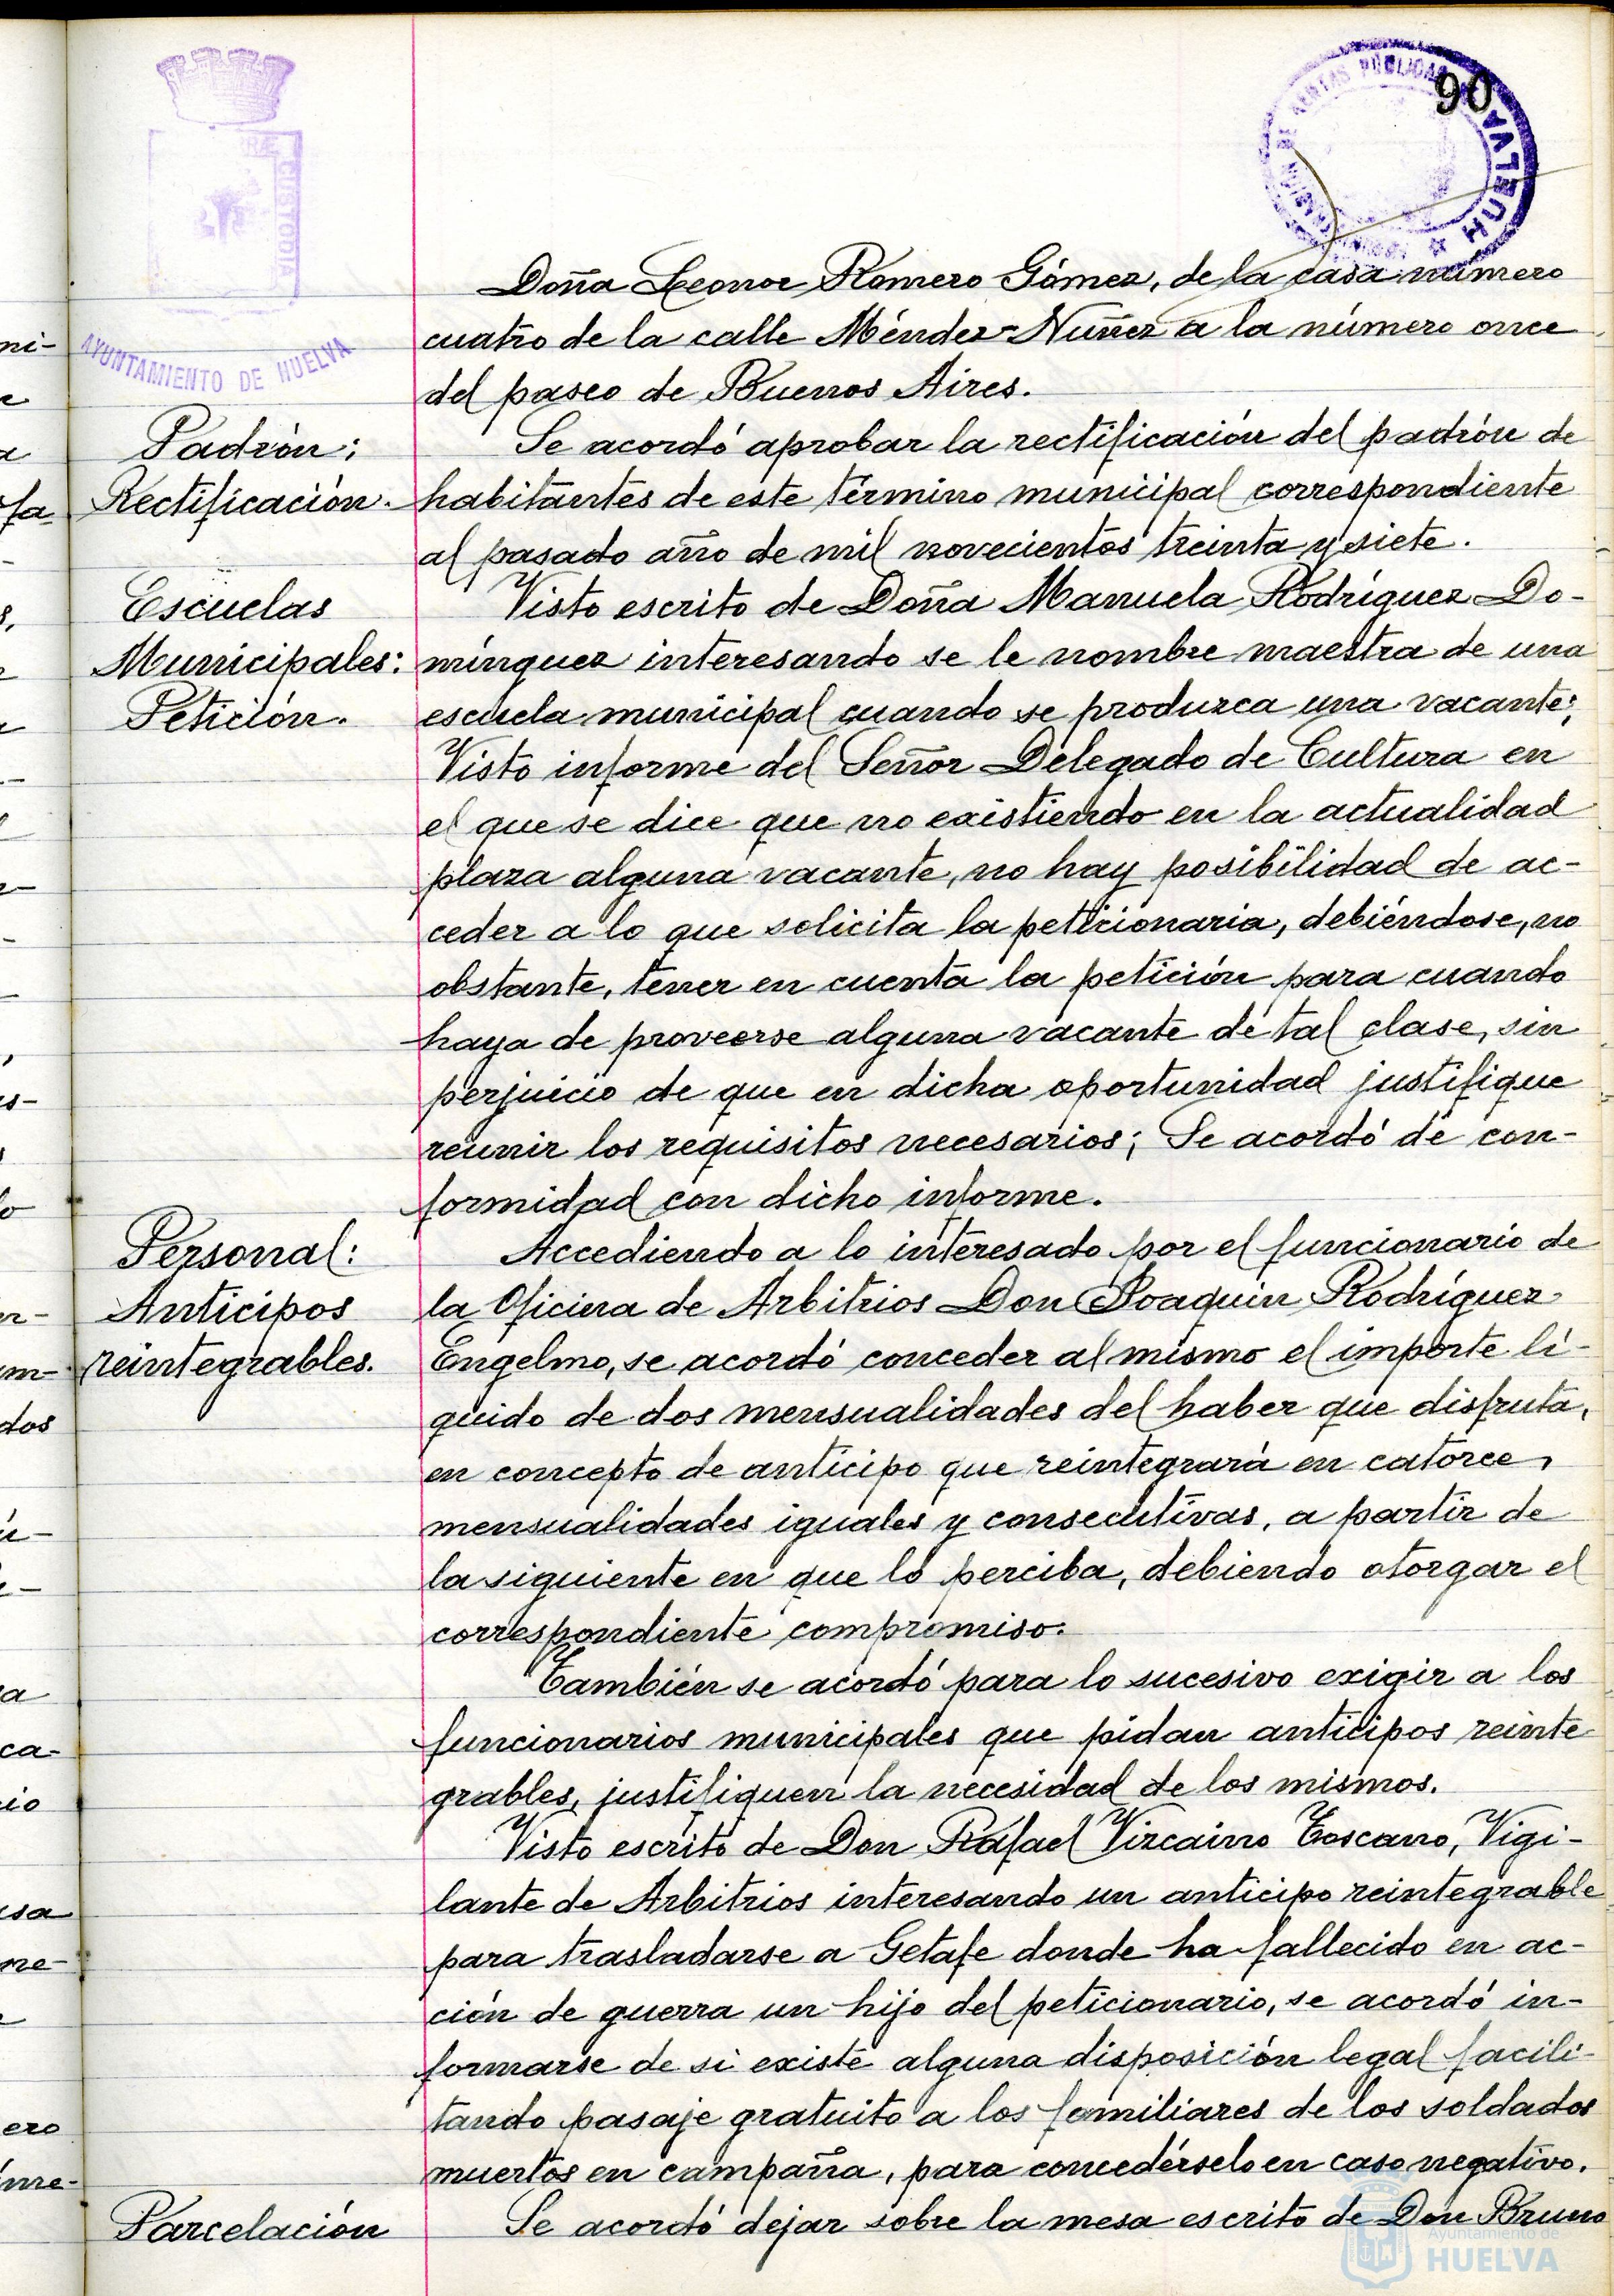 90
ADMINISTRACIÓN DE RENTAS PÚBLICAS
HUELVA
CUSTODIA
AYUNTAMIENTO DE HUELVA
Doña Leonor Romero Gómez, de la casa número
cuatro de la calle Méndez-Nuñez a la número once
del paseo de Buenos Aires.
Padrón:
Rectificación.
Se acordó aprobar la rectificación del padrón de
habitantes de este término municipal correspondiente
al pasado año de mil novecientos treinta y siete.
Escuelas
Municipales:
Petición.
Visto escrito de Doña Manuela Rodríguez Do-
mínguez interesando se le nombre maestra de una
escuela municipal cuando se produzca una vacante;
Visto informe del Señor Delegado de Cultura en
el que se dice que no existiendo en la actualidad
plaza alguna vacante, no hay posibilidad de ac-
ceder a lo que solicita la peticionaria, debiéndose, no
obstante, tener en cuenta la petición para cuando
haya de proveerse alguna vacante de tal clase, sin
perjuicio de que en dicha oportunidad justifique
reunir los requisitos necesarios; Se acordó de con-
formidad con dicho informe.
Personal:
Anticipos
reintegrables.
Accediendo a lo interesado por el funcionario de
la Oficina de Arbitrios Don Joaquín Rodríguez
Engelmo, se acordó conceder al mismo el importe lí-
quido de dos mensualidades del haber que disfruta,
en concepto de anticipo que reintegrará en catorce
mensualidades iguales y consecutivas, a partir de
la siguiente en que lo perciba, debiendo otorgar el
correspondiente compromiso.
También se acordó para lo sucesivo exigir a los
funcionarios municipales que pidan anticipos reinte
grables, justifiquen la necesidad de los mismos.
Visto escrito de Don Rafael Vizcaino Toscano, Vigi-
lante de Arbitrios interesando un anticipo reintegrable
para trasladarse a Getafe donde ha fallecido en ac-
ción de guerra un hijo del peticionario, se acordó in-
formarse de si existe alguna disposición legal facili-
tando pasaje gratuito a los familiares de los soldados
muertos en campaña, para concedérselo en caso negativo.
Parcelación
Se acordó dejar sobre la mesa escrito de Don Bruno
Ayuntamiento de
HUELVA